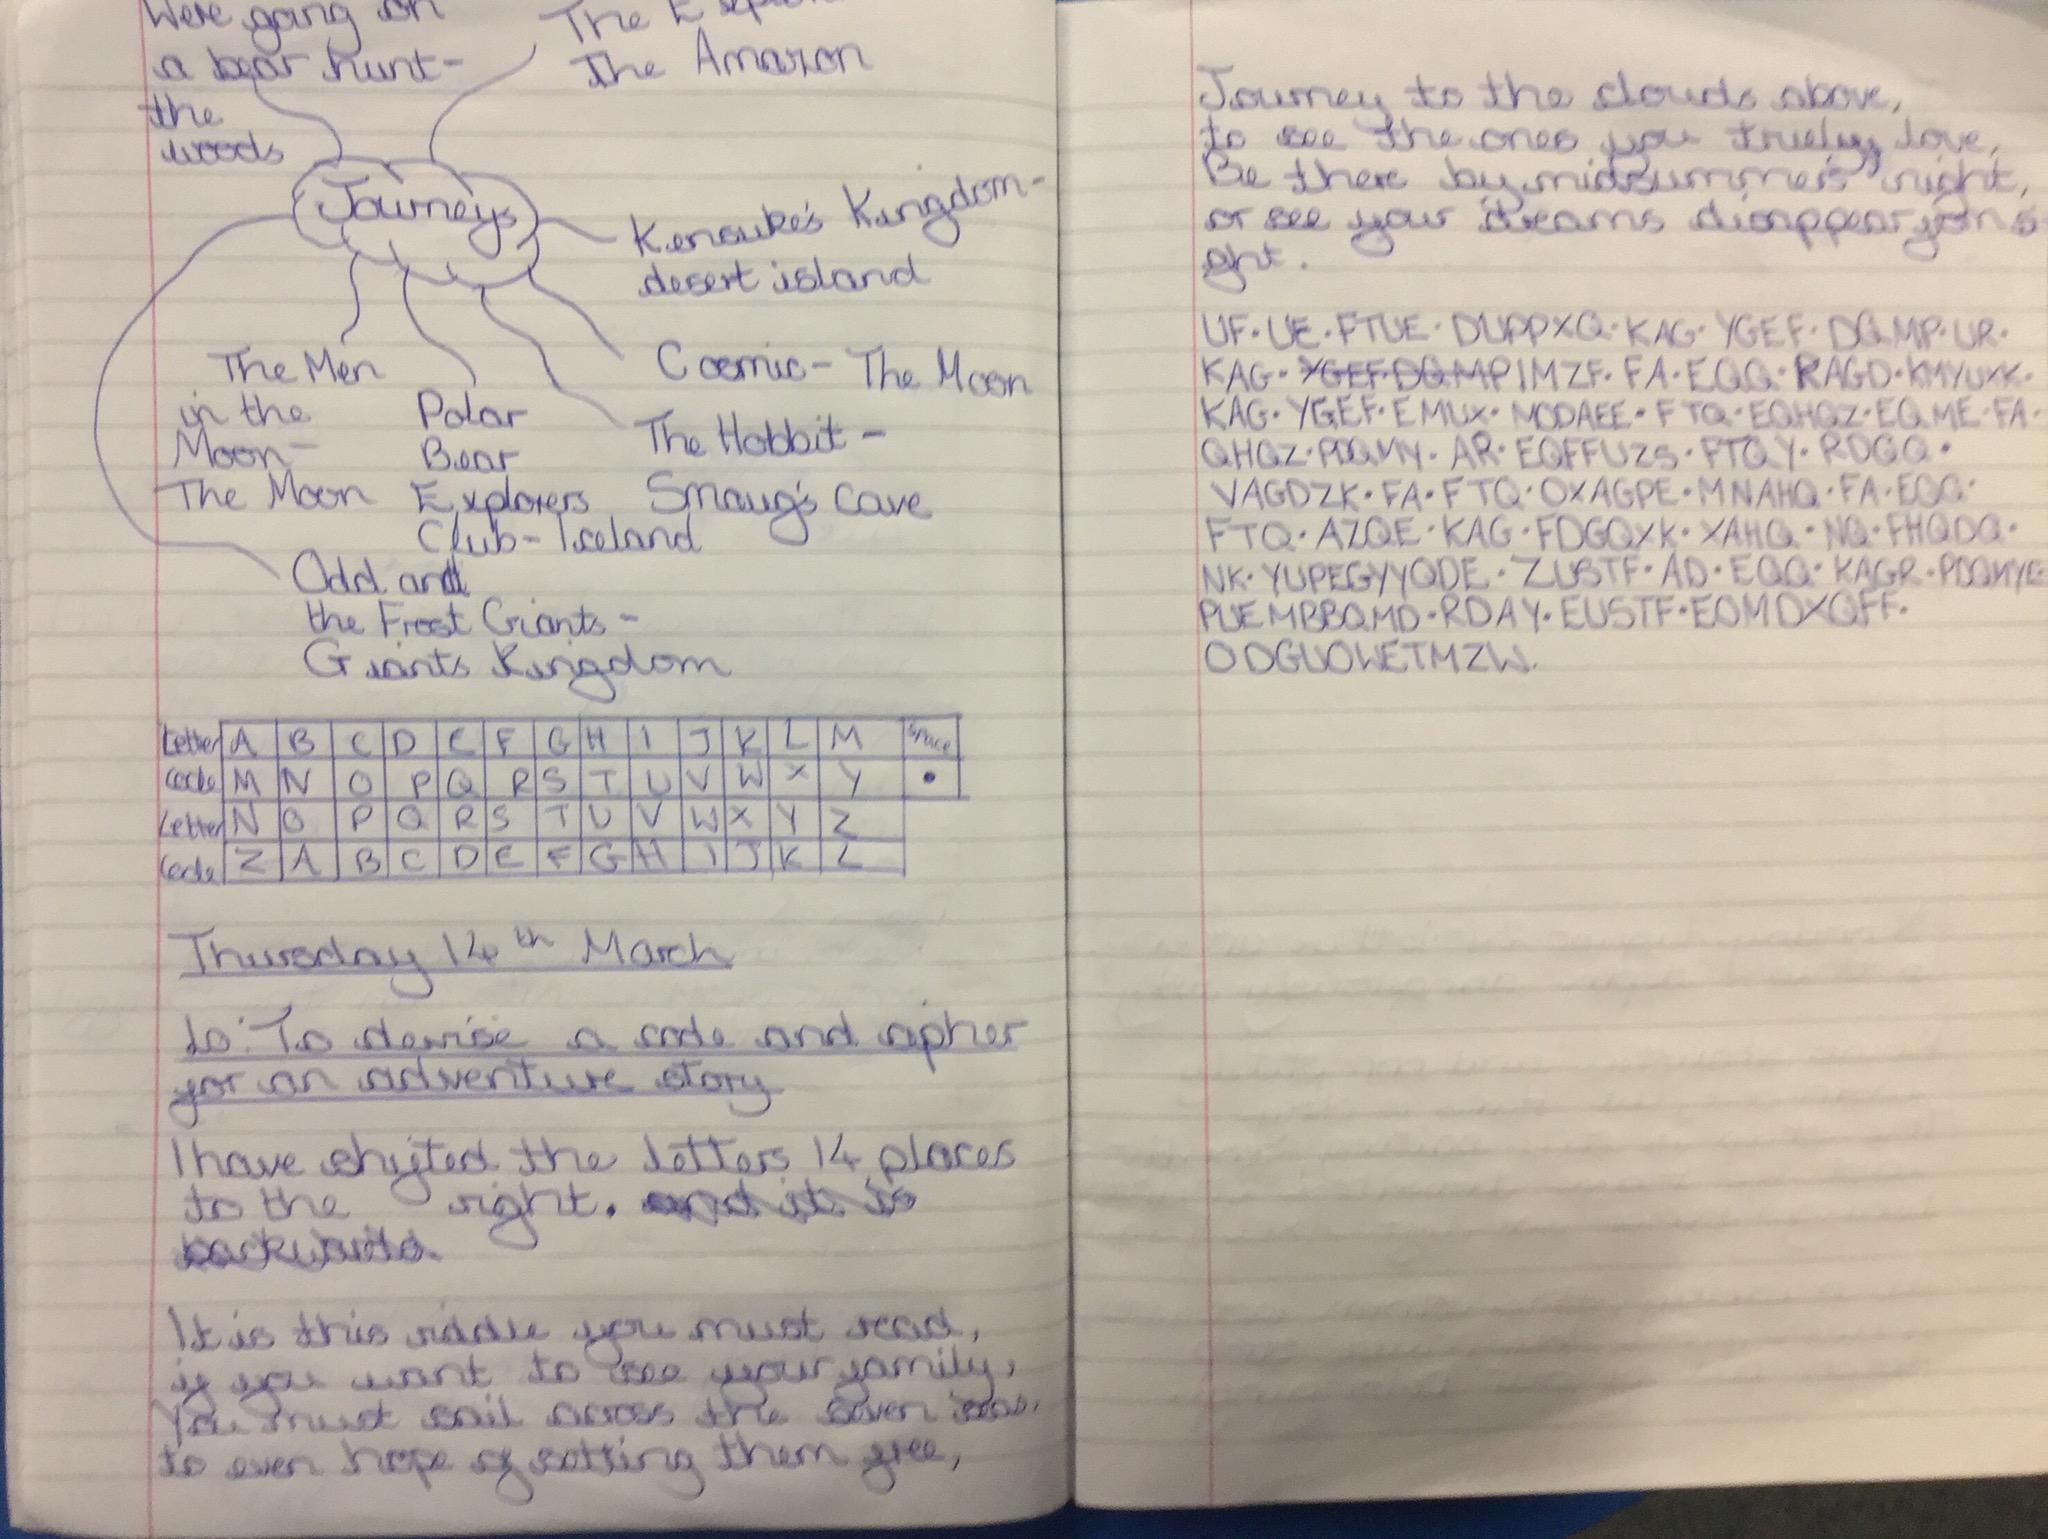 We're going on
a bear hunt-
the
woods
The
The Amazon
Journeys
Kensuke's Kingdom-
desert island
Cosmic- The Moon
The Hobbit-
Smaug's cave
Polar
Bear
Explorers
Club-Iceland
The Men
in the
Moon-
The Moon
Odd and
the Frost Giants-
Giants Kingdom
Letter A B C D E F G H I J K L M space
code M N O P Q R S T U V W X Y •
Letter N O P Q R S T U V W X Y Z
code Z A B C D E F G H I J K L
Thursday 14th March
Lo: To devise a code and cipher
for an adventure story
I have shifted the letters 14 places
to the right. and it is
backwards.
It is this riddle you must read,
if you want to see your family,
You must sail across the seven seas,
to even hope of setting them free,
Journey to the clouds above,
to see the ones you truely love,
Be there by midsummer's night,
or see your dreams disappear from si
ght.
UF·UE·FTUE·DUPPXQ·KAG·YGEF·DQMP·UR·
KAG·YGEF·DQMPIMZF·FA·EQQ·KAGD·RMYUXK·
KAG·YGEF·EMUX·MODAEE·FTQ·EQHQZ·EQME·FA·
QHQZ· AR·EQFFUZS·FTQY·RDQQ·
VAGDZK·FA·FTQ·OXAGPE·MNAHQ·FA·EQQ·
FTQ·AZQE·KAG·FDGQXK·XAHQ·NQ·FHQDQ·
NK·YUPEGYYQDE·ZUSTF·AD·EQQ·KAGR·
PUEMBBQMD·RDAY·EUSTF·EOMDXQFF·
ODGUOWETMZW.